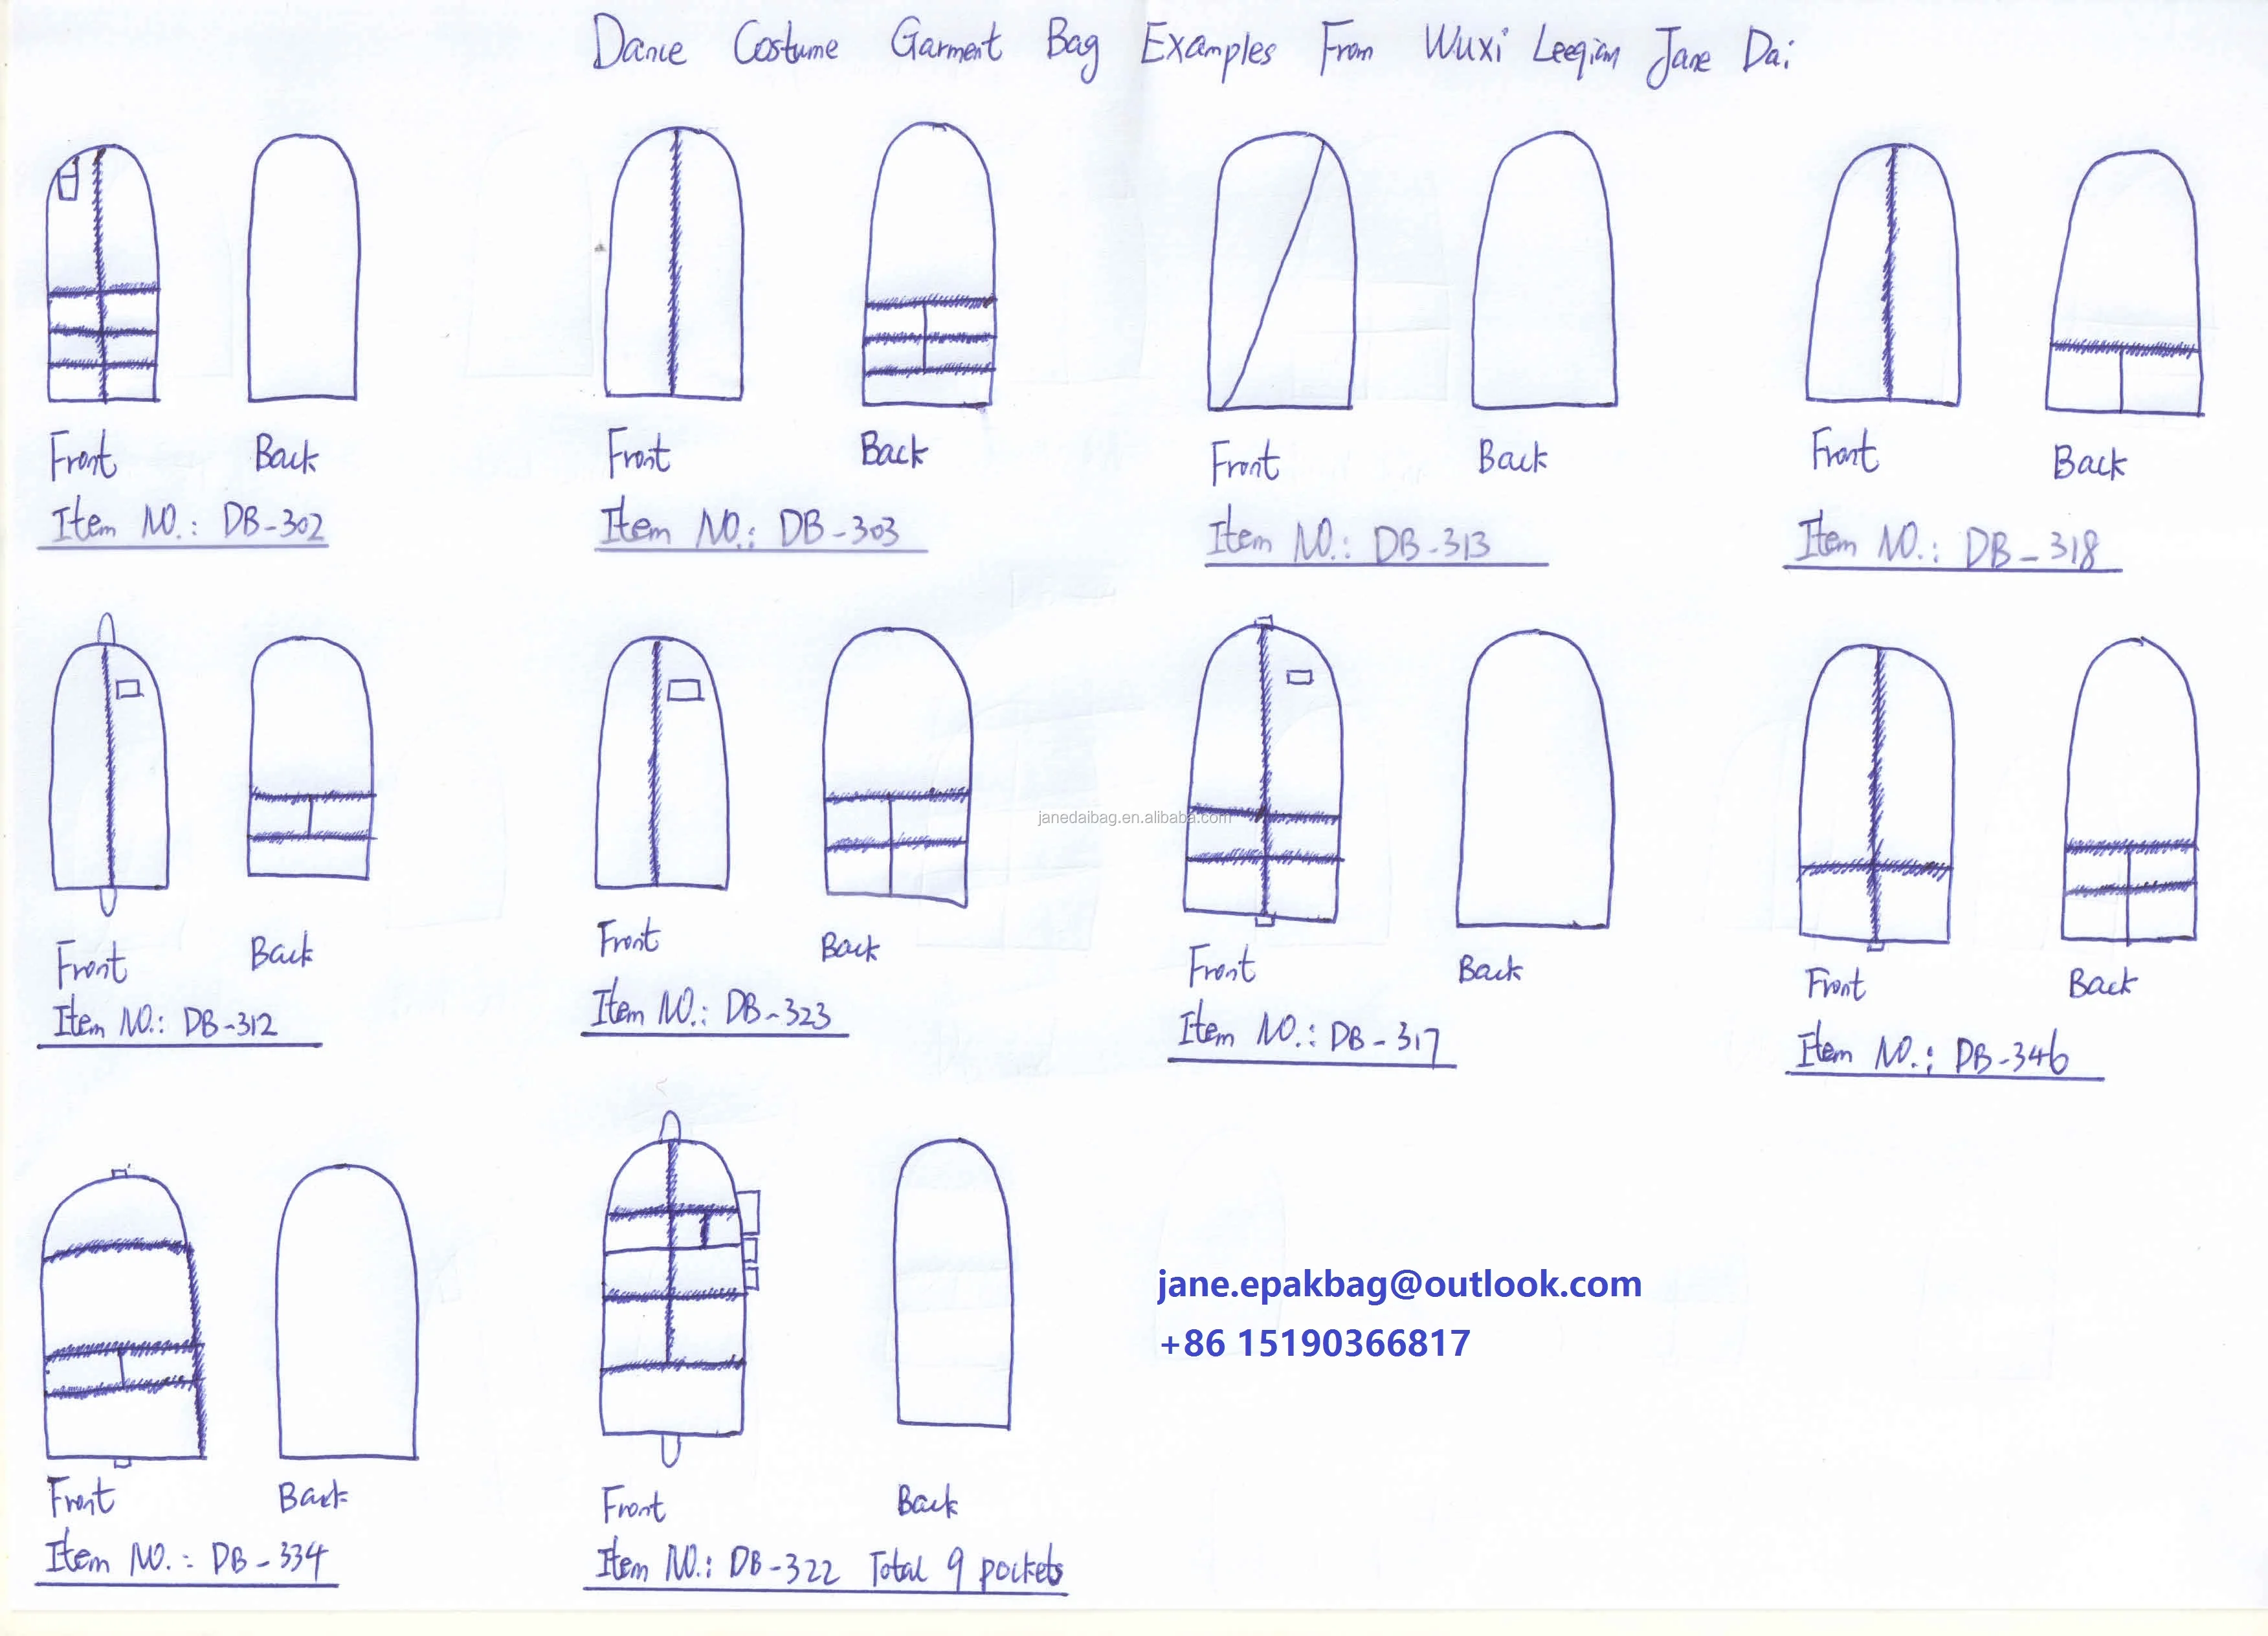 Dance Costume Garment Bag Examples From Wuxi Leeqian Jane Dai
Front Back Front Back Front Back Front Back
Item NO.: DB-302 Item NO.: DB-303 Item NO.: DB-313 Item NO.: DB-318
janedaibag.en.alibaba.com
Front Back Front Back Front Back Front Back
Item NO.: DB-312 Item NO.: DB-323 Item NO.: DB-317 Item NO.: DB-346
jane.epakbag@outlook.com
+86 15190366817
Front Back Front Back
Item NO.: DB-334 Item NO.: DB-322 Total 9 pockets